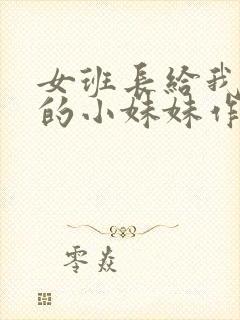 女班长给我
的小妹妹作
零焱